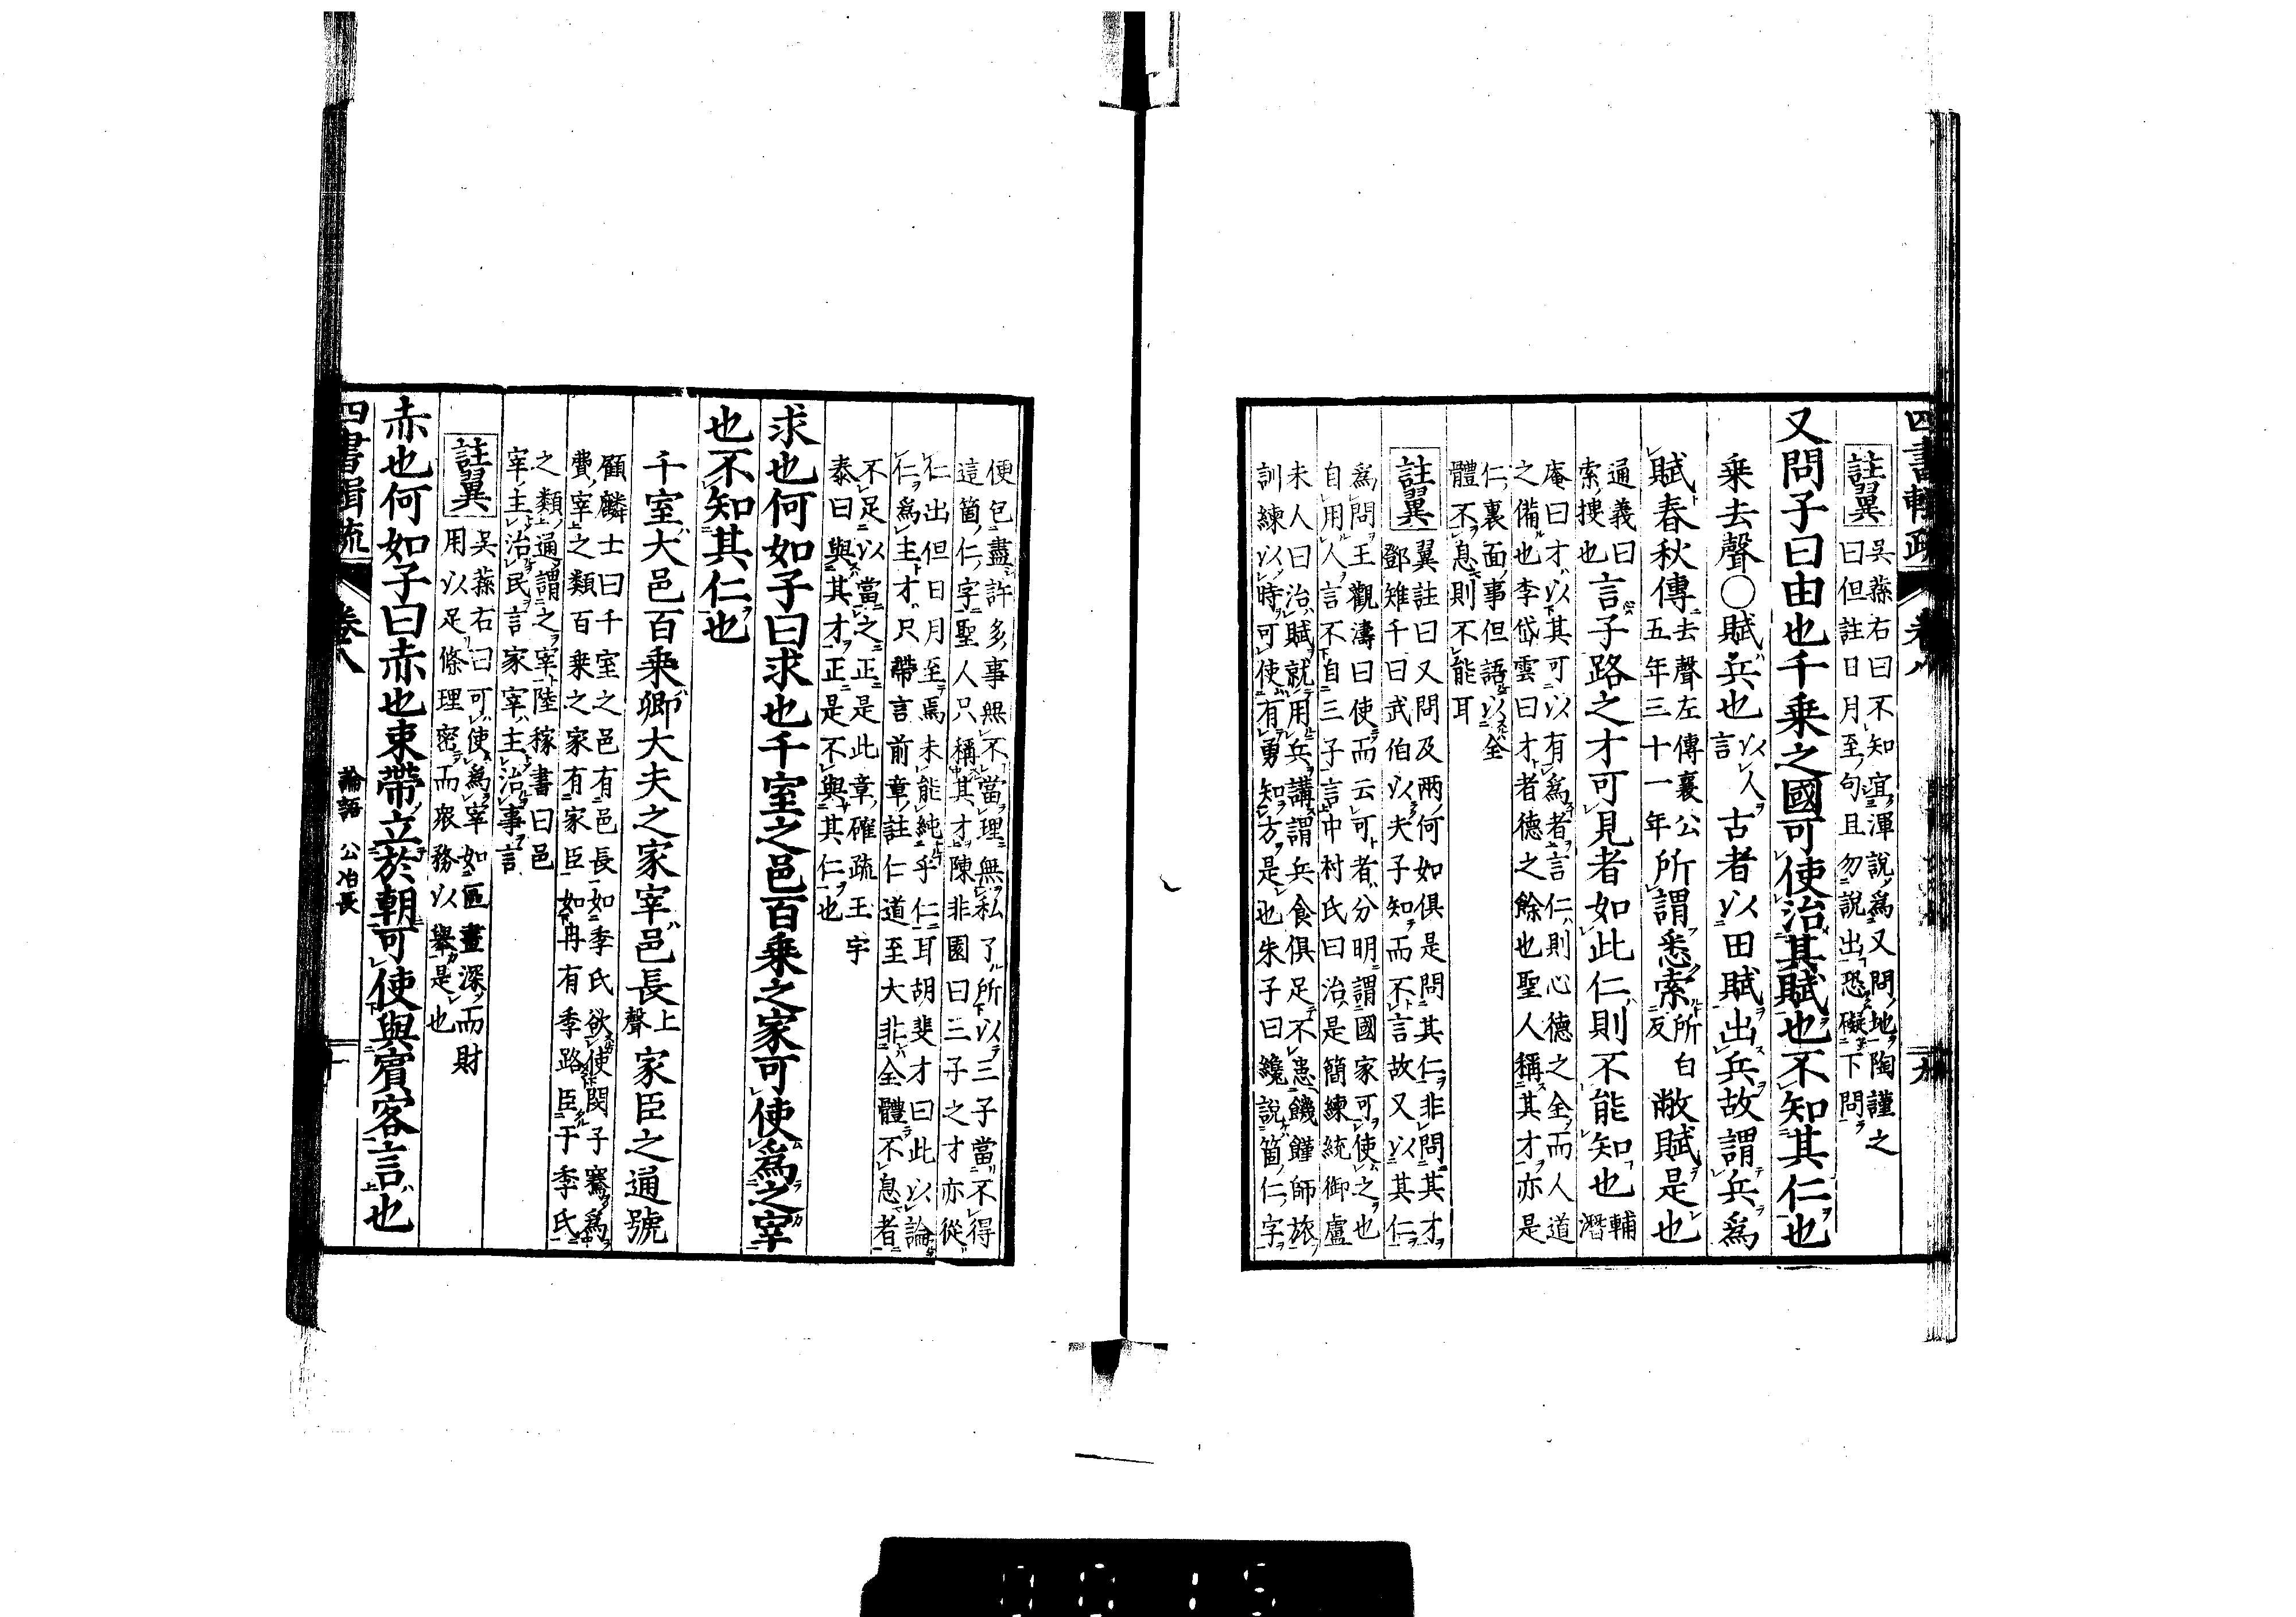 四書輯疏 卷八 十九
註翼 吳蓀右曰不知宜渾說爲又問地陶謹之
曰但註日月至句且勿說出恐礙下問
又問子曰由也千乘之國可使治其賦也不知其仁也
乘去聲○賦兵也言以人古者以田賦出兵故謂兵爲
賦春秋傳去聲左傳襄公五年三十一年所謂悉索所白反敝賦是也
通義曰索搜也言子路之才可見者如此仁則不能知也輔潛
庵曰才以其可以有爲者言仁則心德之全而人道
之備也李岱雲曰才者德之餘也聖人稱其才亦是
仁裏面事但語以全
體不息則不能耳
註翼 翼註曰又問及兩何如俱是問其仁非問其才
鄧雉千曰武伯以夫子知而不言故又以其仁
爲問王觀濤曰使而云可者分明謂國家可使之也
自用人言不自三子言中村氏曰治是簡練統御盧
未人曰治賦就用兵講謂兵食俱足不患饑饉師旅
訓練以時可使有勇知方是也朱子曰纔說箇仁字
便包盡許多事無不當理無私了所以三子當不得
這箇仁字聖人只稱其才陳非園曰三子之才亦從
仁出但日月至焉未能純乎仁耳胡斐才曰此以論
仁爲主才只帶言前章註仁道至大非全體不息者
不足以當之正是此章確疏王宇
泰曰與其才正是不與其仁也
求也何如子曰求也千室之邑百乘之家可使爲之宰
也不知其仁也
千室大邑百乘卿大夫之家宰邑長上聲家臣之通號
顧麟士曰千室之邑有邑長如季氏欲使閔子騫爲
費宰之類百乘之家有家臣如冉有季路臣于季氏
之類通謂之宰陸稼書曰邑
宰主治民言家宰主治事言
註翼 吳蓀右曰可使爲宰如區畫深而財
用以足條理密而衆務以舉是也
赤也何如子曰赤也束帶立於朝可使與賓客言也
四書輯疏 卷八 論語 公冶長